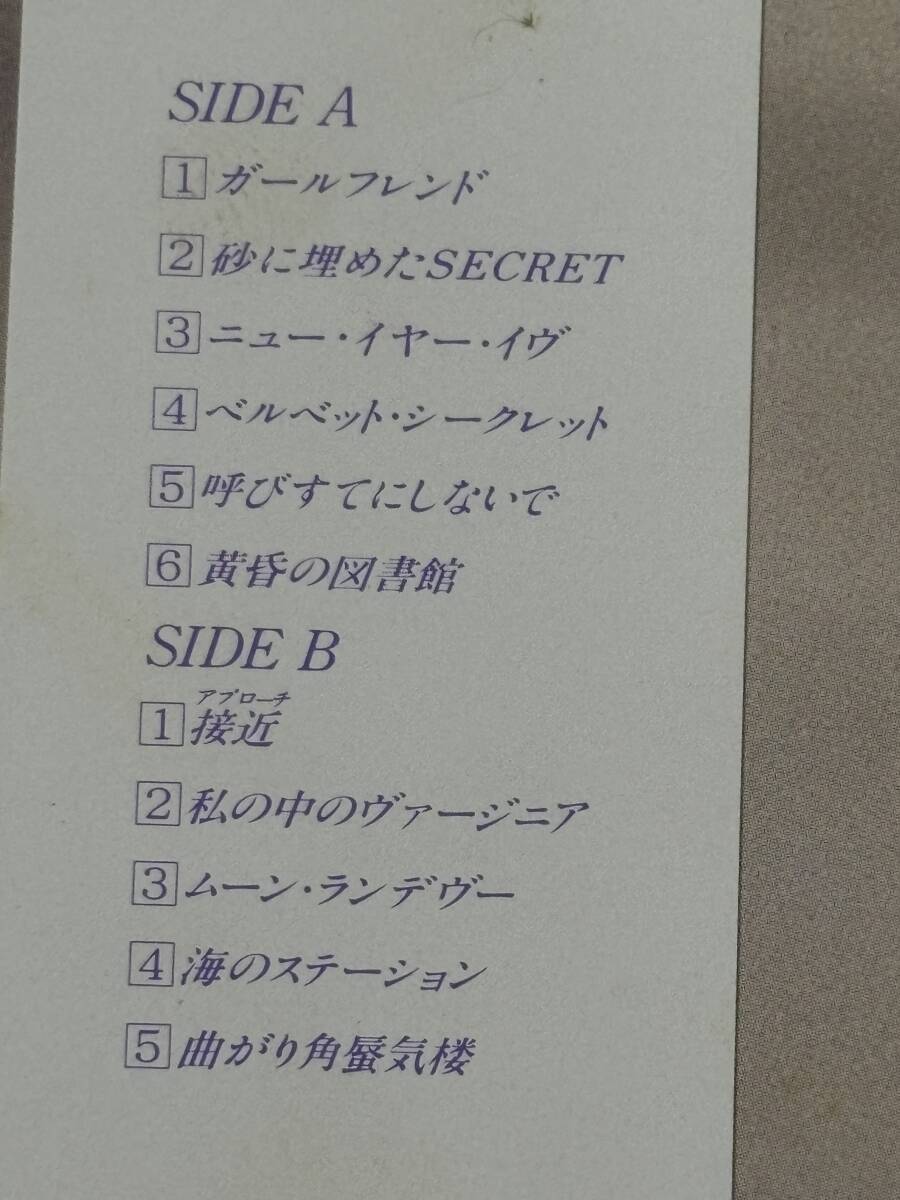 SIDE A
1 ガールフレンド
2 砂に埋めたSECRET
3 ニュー・イヤー・イヴ
4 ベルベット・シークレット
5 呼びすてにしないで
6 黄昏の図書館
SIDE B
アプローチ
1 接近
2 私の中のヴァージニア
3 ムーン・ランデヴー
4 海のステーション
5 曲がり角蜃気楼